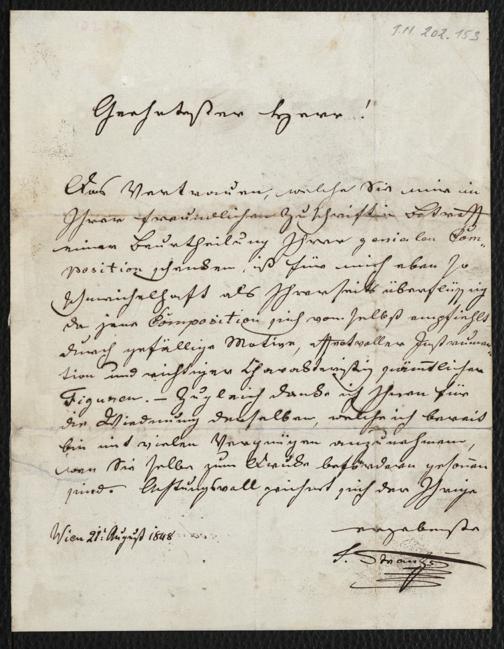 I.N. 202.153
Geehrtester Herr!
Das Vertrauen, welche Sie mir in
Ihrer freundlichen Zuschrift in Betreff
einer Beurtheilung Ihrer genialen Com-
position schenken, ist für mich eben so
schmeichelhaft als Ihrerseits überflüssig
da jene Composition sich von selbst empfiehlt
durch gefällige Motive, effectvoller Instrumen-
tion und richtiger Charakteristig sämtlicher
Figuren. – Zugleich danke ich Ihnen für
die Wiedmung derselben, welche ich bereit
bin mit vielen Vergnügen anzunehmen,
wen Sie selbe zum Drucke befördern gesonen
sind. Achtungsvoll zeichnet sich der Ihrige
ergebenste
Wien 21t August 1848
J. Strauß